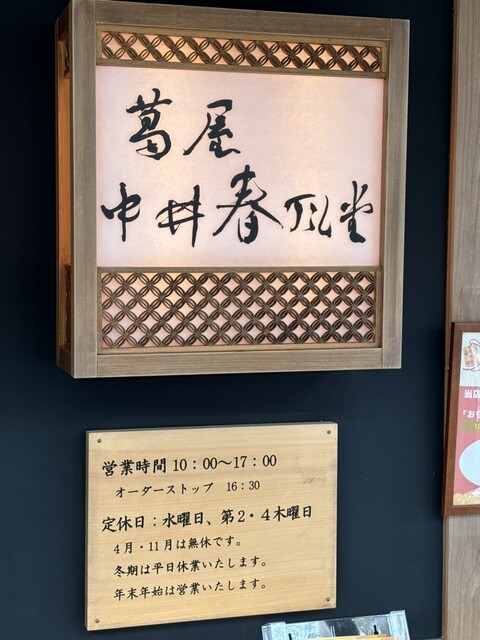 葛屋
中井春風堂
営業時間 10：00～17：00
オーダーストップ　16：30
定休日：水曜日、第2・4木曜日
4月・11月は無休です。
冬期は平日休業いたします。
年末年始は営業いたします。